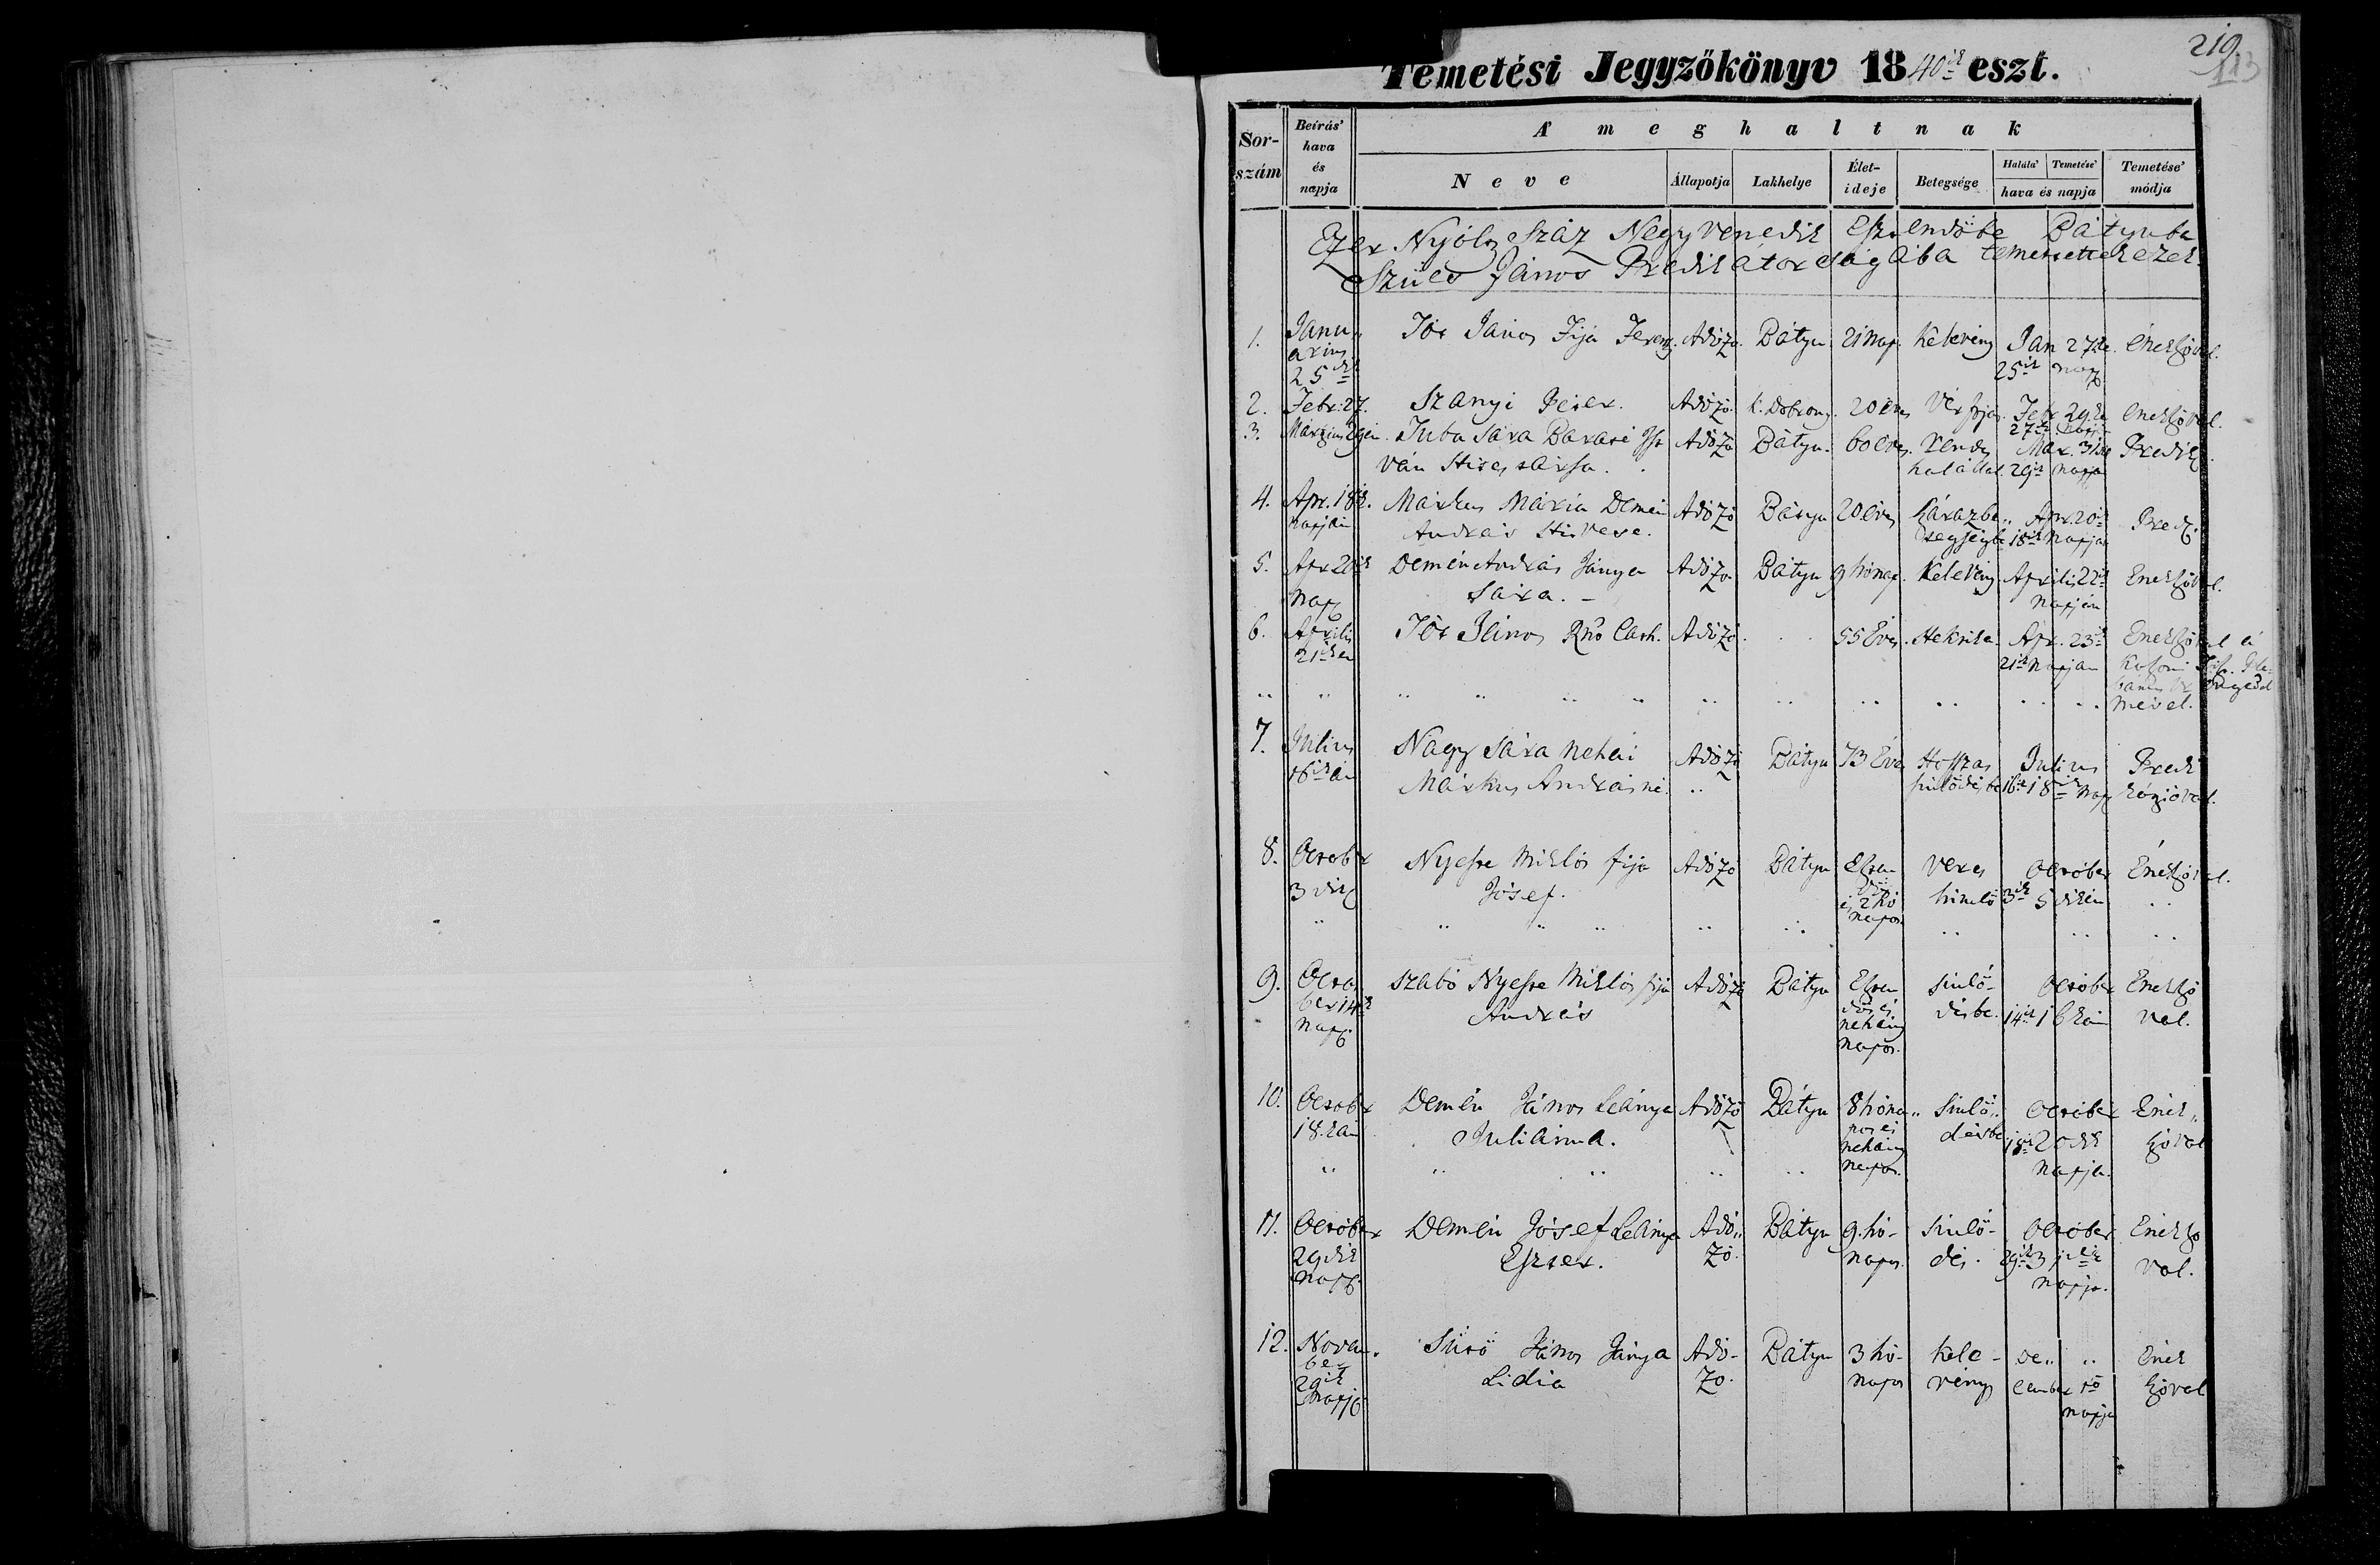 219.
113
Temetési Jegyzőkönyv 1840ik eszt.
Sor-szám Beírás' hava és napja A' meghaltnak
Neve Állapotja Lakhelye Élet-ideje Betegsége Halála' Temetése' hava és napja Temetése' módja
Ezer Nyólcz Száz Negyvenedik Esztendőbe Bátyuba
Szűcs János Predikátorságába temettettek ezek.
1. Januarius 25dik Jós János Fija Ferencz Adózó Bátyu 21 nap. Kelevény Jan 25ik 27ke. napj. énekszóval.
2. Febr: 27. Szanyi Péter. Adózó. K. Dobrony. 20 éves Vér folyás. Febr 27ik 29ke napj. énekszóval.
3. Márzius 29én Juba Sára Barási Ist
ván Hites társa. Adózó Bátyu. 60 éves. rendes halállal. Már. 29ik 31ke napja Prediki.
4. Apr. 18ik. napján Márkus Mária Demén
András Hitvese. Adózó Bátyu 20 éves száraz be,,tegségbe Apr. 18ik 20ik napján Pred.
5. Apr 20ik nap. Demén András jánya
Sára. Adózó Bátyu 9 hónap. Kelevény Aprilis 22ik napján Énekszóval.
6. Aprilis 21ikén Jós János Rno Cath. Adózó. 55 Éves. Hektika. Apr. 21ik 23ik napján Énekszóval é
mével.
7. Julius 16ikán Nagy Sára néhai
Márkus Andrásné. Adózó Bátyu 73 Éves Hosszas sinlődésbe Julius 16ik 18ik nap. Predikázióval.
8. October 3dik Nyeste Miklós fija
Jósef. Adózó Bátyu Eszten dős és 2 hó napos Veres himlő October 3ik 5dikén Énekszóval.
9. October 14ik nap. Szabó Nyeste Miklós fija
András Adózó Bátyu Eszten dős és néhány napos. sinlő-désbe. October 14ik 16kán Énekszó val.
10. October 18.kán Demén János Leánya
Juliánna. Adózó Bátyu 8 hóna,, pos és néhány napos. Sinlő,, désbe October 18ik 20dik napja. Ének,, szóval
11. October 29dik napj. Demén Jósef Leánya
Eszter. Adó,, zó. Bátyu 9. hó-napos. sinlő-dés. October 29ik 31dik napja. Énekszó val.
12. November 29ik napj. Sürö János jánya
Lidia Adó-zó. Bátyu 3 hó-napos kele-vény De,, cember 1ő napja Ének szóval